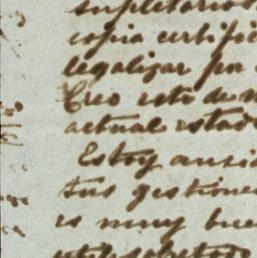 supletorios
copia certifi
legalizar por
Creo este de
actual estad
Estoy ansi
tus gestione
es muy bue